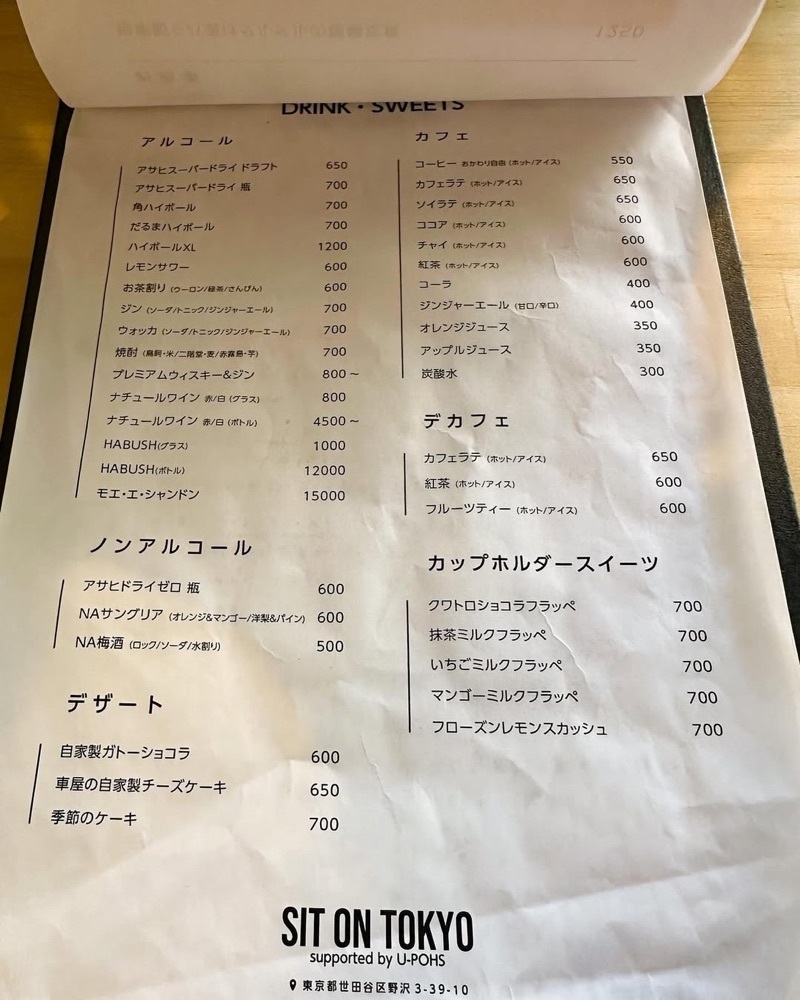 DRINK・SWEETS
アルコール
アサヒスーパードライ ドラフト 650
アサヒスーパードライ 瓶 700
角ハイボール 700
だるまハイボール 700
ハイボールXL 1200
レモンサワー 600
お茶割り (ウーロン/緑茶/さんぴん) 600
ジン (ソーダ/トニック/ジンジャーエール) 700
ウォッカ (ソーダ/トニック/ジンジャーエール) 700
焼酎 (鳥飼・米/二階堂・麦/赤霧島・芋) 700
プレミアムウィスキー&ジン 800～
ナチュールワイン 赤/白 (グラス) 800
ナチュールワイン 赤/白 (ボトル) 4500～
HABUSH(グラス) 1000
HABUSH(ボトル) 12000
モエ・エ・シャンドン 15000
ノンアルコール
アサヒドライゼロ 瓶 600
NAサングリア (オレンジ&マンゴー/洋梨&パイン) 600
NA梅酒 (ロック/ソーダ/水割り) 500
デザート
自家製ガトーショコラ 600
車屋の自家製チーズケーキ 650
季節のケーキ 700
カフェ
コーヒー おかわり自由 (ホット/アイス) 550
カフェラテ (ホット/アイス) 650
ソイラテ (ホット/アイス) 650
ココア (ホット/アイス) 600
チャイ (ホット/アイス) 600
紅茶 (ホット/アイス) 600
コーラ 400
ジンジャーエール (甘口/辛口) 400
オレンジジュース 350
アップルジュース 350
炭酸水 300
デカフェ
カフェラテ (ホット/アイス) 650
紅茶 (ホット/アイス) 600
フルーツティー (ホット/アイス) 600
カップホルダースイーツ
クワトロショコラフラッペ 700
抹茶ミルクフラッペ 700
いちごミルクフラッペ 700
マンゴーミルクフラッペ 700
フローズンレモンスカッシュ 700
SIT ON TOKYO
supported by U-POHS
東京都世田谷区野沢 3-39-10